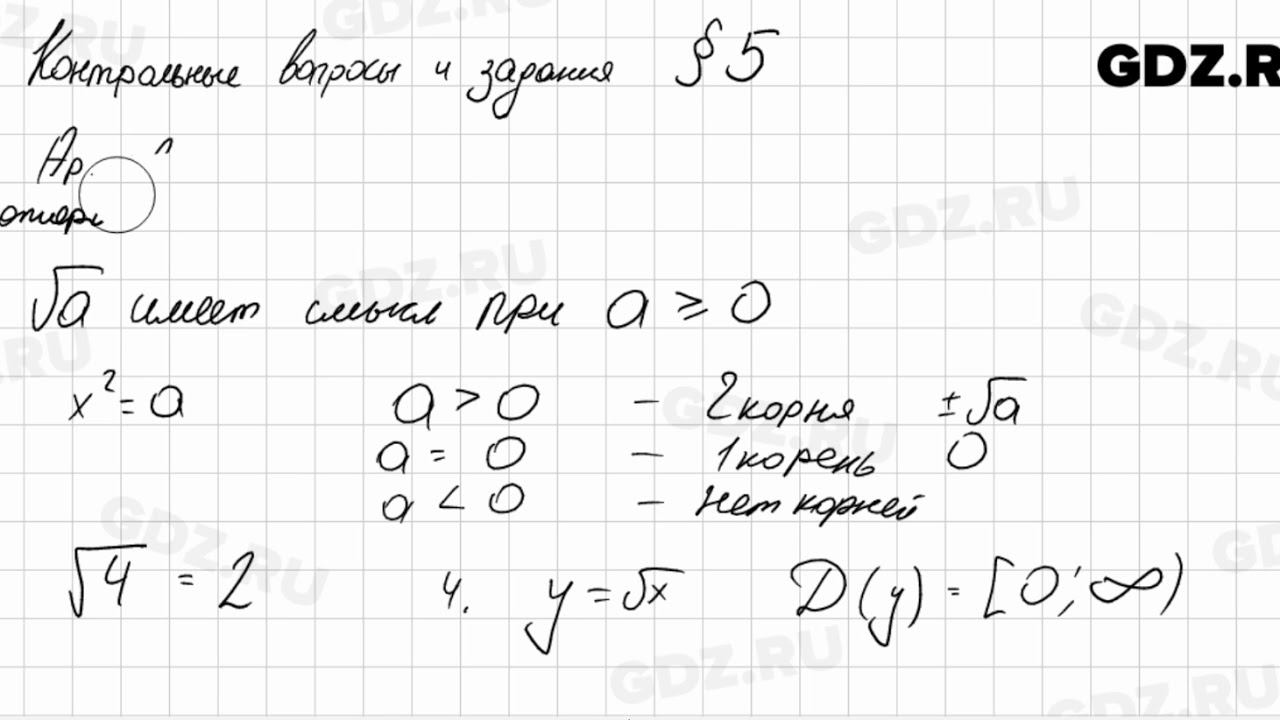 Контрольные вопросы и задания § 5
GDZ.R
Ар
√a имеет смысл при a ≥ 0
x² = a a > 0 – 2 корня ±√a
a = 0 – 1 корень 0
a < 0 – Нет корней
√4 = 2 4. y = √x D(y) = [0; ∞)
GDZ.RU